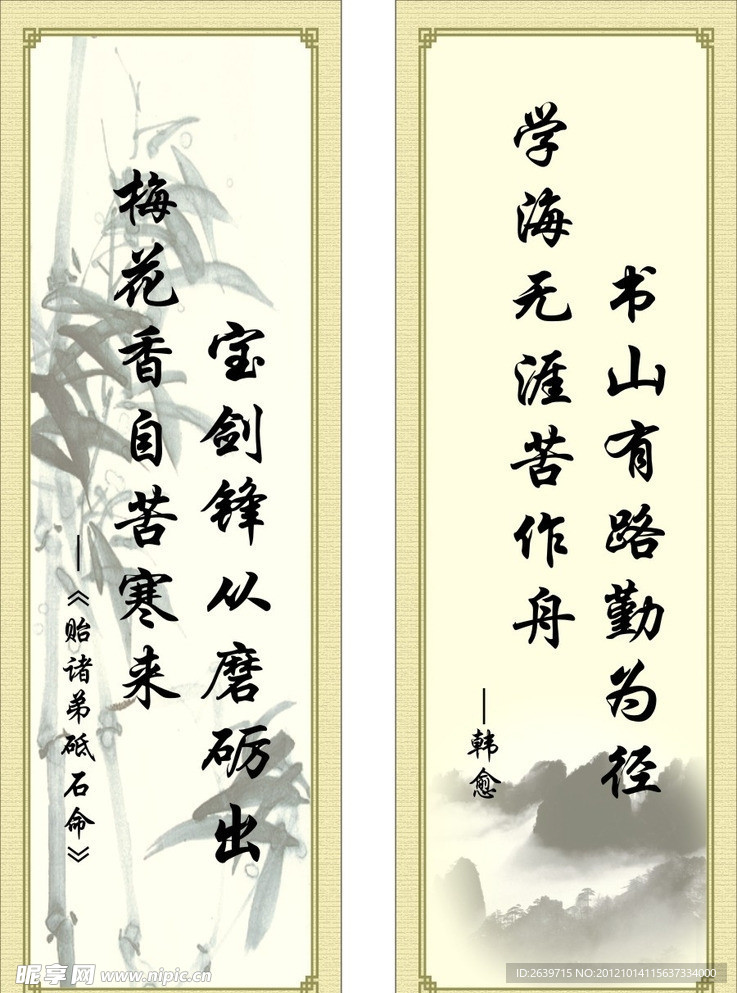 宝剑锋从磨砺出
梅花香自苦寒来
——《贻诸弟砥石命》
书山有路勤为径
学海无涯苦作舟
——韩愈
昵享网 www.nipic.cn
ID:2639715 NO:20121014115637334000